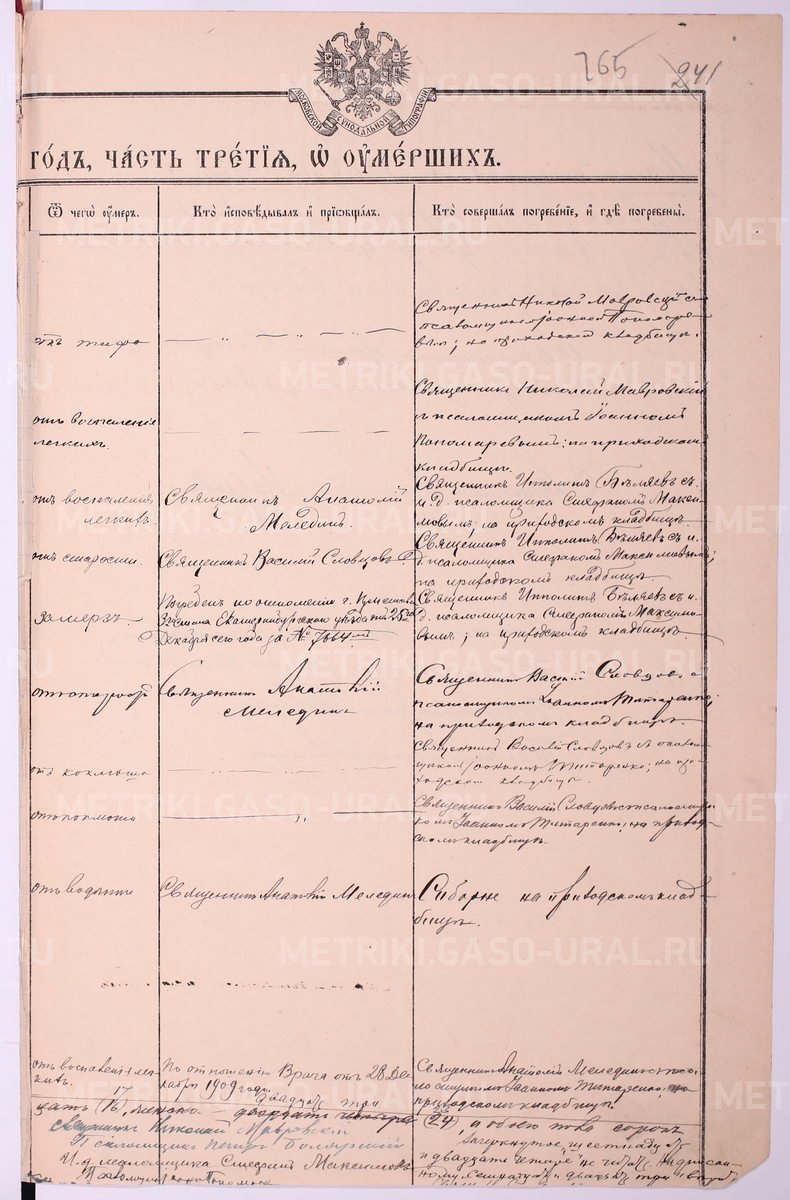 265 241
МОСКОВСКОЙ СѴНОДАЛЬНОЙ ТИПОГРАФІИ
ГО́ДЪ, ЧА́СТЬ ТРЕ́ТЇѦ, Ѡ҆ ОУ҆МЕ́РШИХЪ.
Ѿ чегѡ̀ оу҆́меръ.
Кто̀ и҆сповѣ́дывалъ и҆ прїѡбща́лъ.
Кто̀ соверша́лъ погребе́нїе, и҆ гдѣ̀ погребены̀.
отъ тифа
Священникъ Николай Мавровскій съ
псаломщикомъ Іоанномъ Пономаре-
вымъ; на приходскомъ кладбищѣ.
отъ воспаленія
легкихъ.
Священникъ Николай Мавровскій
и псаломщикомъ Іоанномъ
Пономаревымъ; на приходскомъ
кладбищѣ.
отъ воспаленія
легкихъ.
Священникъ Анатолій
Мелединъ.
Священникъ Ипполитъ Бѣляевъ съ
и. д. псаломщика Стефаномъ Макси-
мовымъ; на приходскомъ кладбищѣ.
отъ старости.
Священникъ Василій Словцовъ
Священникъ Ипполитъ Бѣляевъ съ и.
д. псаломщика Стефаномъ Максимовымъ;
на приходскомъ кладбищѣ.
замерзъ
Погребенъ по отношенію г.
Екатеринбургскаго уѣзда
Декабря сего года за № 7664
Священникъ Ипполитъ Бѣляевъ съ и.
д. псаломщика Стефаномъ Максимо-
вымъ; на приходскомъ кладбищѣ
Священникъ Анатолій
Мелединъ
Священникъ Василій Словцовъ с
псаломщикомъ Іоанномъ Титаренко;
на приходскомъ кладбищѣ.
отъ коклюша
Священникъ Василій Словцовъ с псалом-
щикомъ Іоанномъ Титаренко; на при-
ходскомъ кладбищѣ.
отъ коклюша
Священникъ Василій Словцовъ с псаломщи-
комъ Іоанномъ Титаренко; на приход-
скомъ кладбищѣ.
отъ водянки
Священникъ Анатолій Меледин
Соборне на приходскомъ клад-
бищѣ.
отъ воспаленія лег-
кихъ.
По отношенію Врача отъ 28 Де-
кабря 1909 года
Священникъ Анатолій Мелединъ с пса-
ломщикомъ Іоанномъ Титаренко; на
приходскомъ кладбищѣ.
17 двадцать три
цать (16), женска – двадцать четыре
(24), а обоего пола сорокъ
Священникъ Николай Мавровскій
Зачеркнутое „шестнадцать
Псаломщикъ Петръ
и двадцать четыре" не читать, надписан-
И. д. псаломщика Стефанъ Максимовъ
ному семнадцать и двадцать три
METRIKI.GASO-URAL.RU